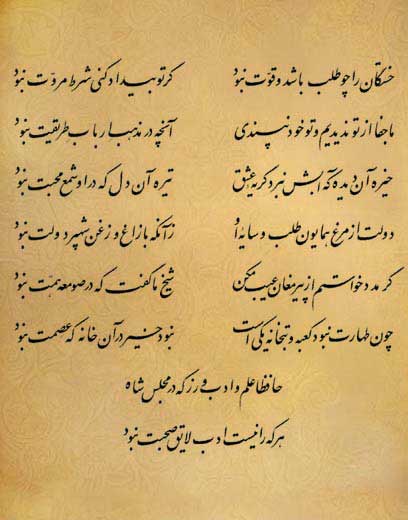 خستگان را چو طلب باشد و قوّت نبود گر تو بیداد کنی شرط مروّت نبود
ما جفا از تو ندیدیم و تو خود نپسندی آنچه در مذهب ارباب طریقت نبود
خیره آن دیده که آبش نبرد گریه عشق تیره آن دل که در او شمع محبت نبود
دولت از مرغ همایون طلب و سایه او زآنکه با زاغ و زغن شهپر دولت نبود
گر مدد خواستم از پیر مغان عیب مکن شیخ ما گفت که در صومعه همّت نبود
چون طهارت نبود کعبه و بتخانه یکی است نبود خیر در آن خانه که عصمت نبود
حافظا علم و ادب ورز که در مجلس شاه
هر که را نیست ادب لایق صحبت نبود